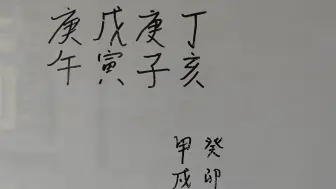 庚戊庚丁
午寅子亥
甲癸
戌卯